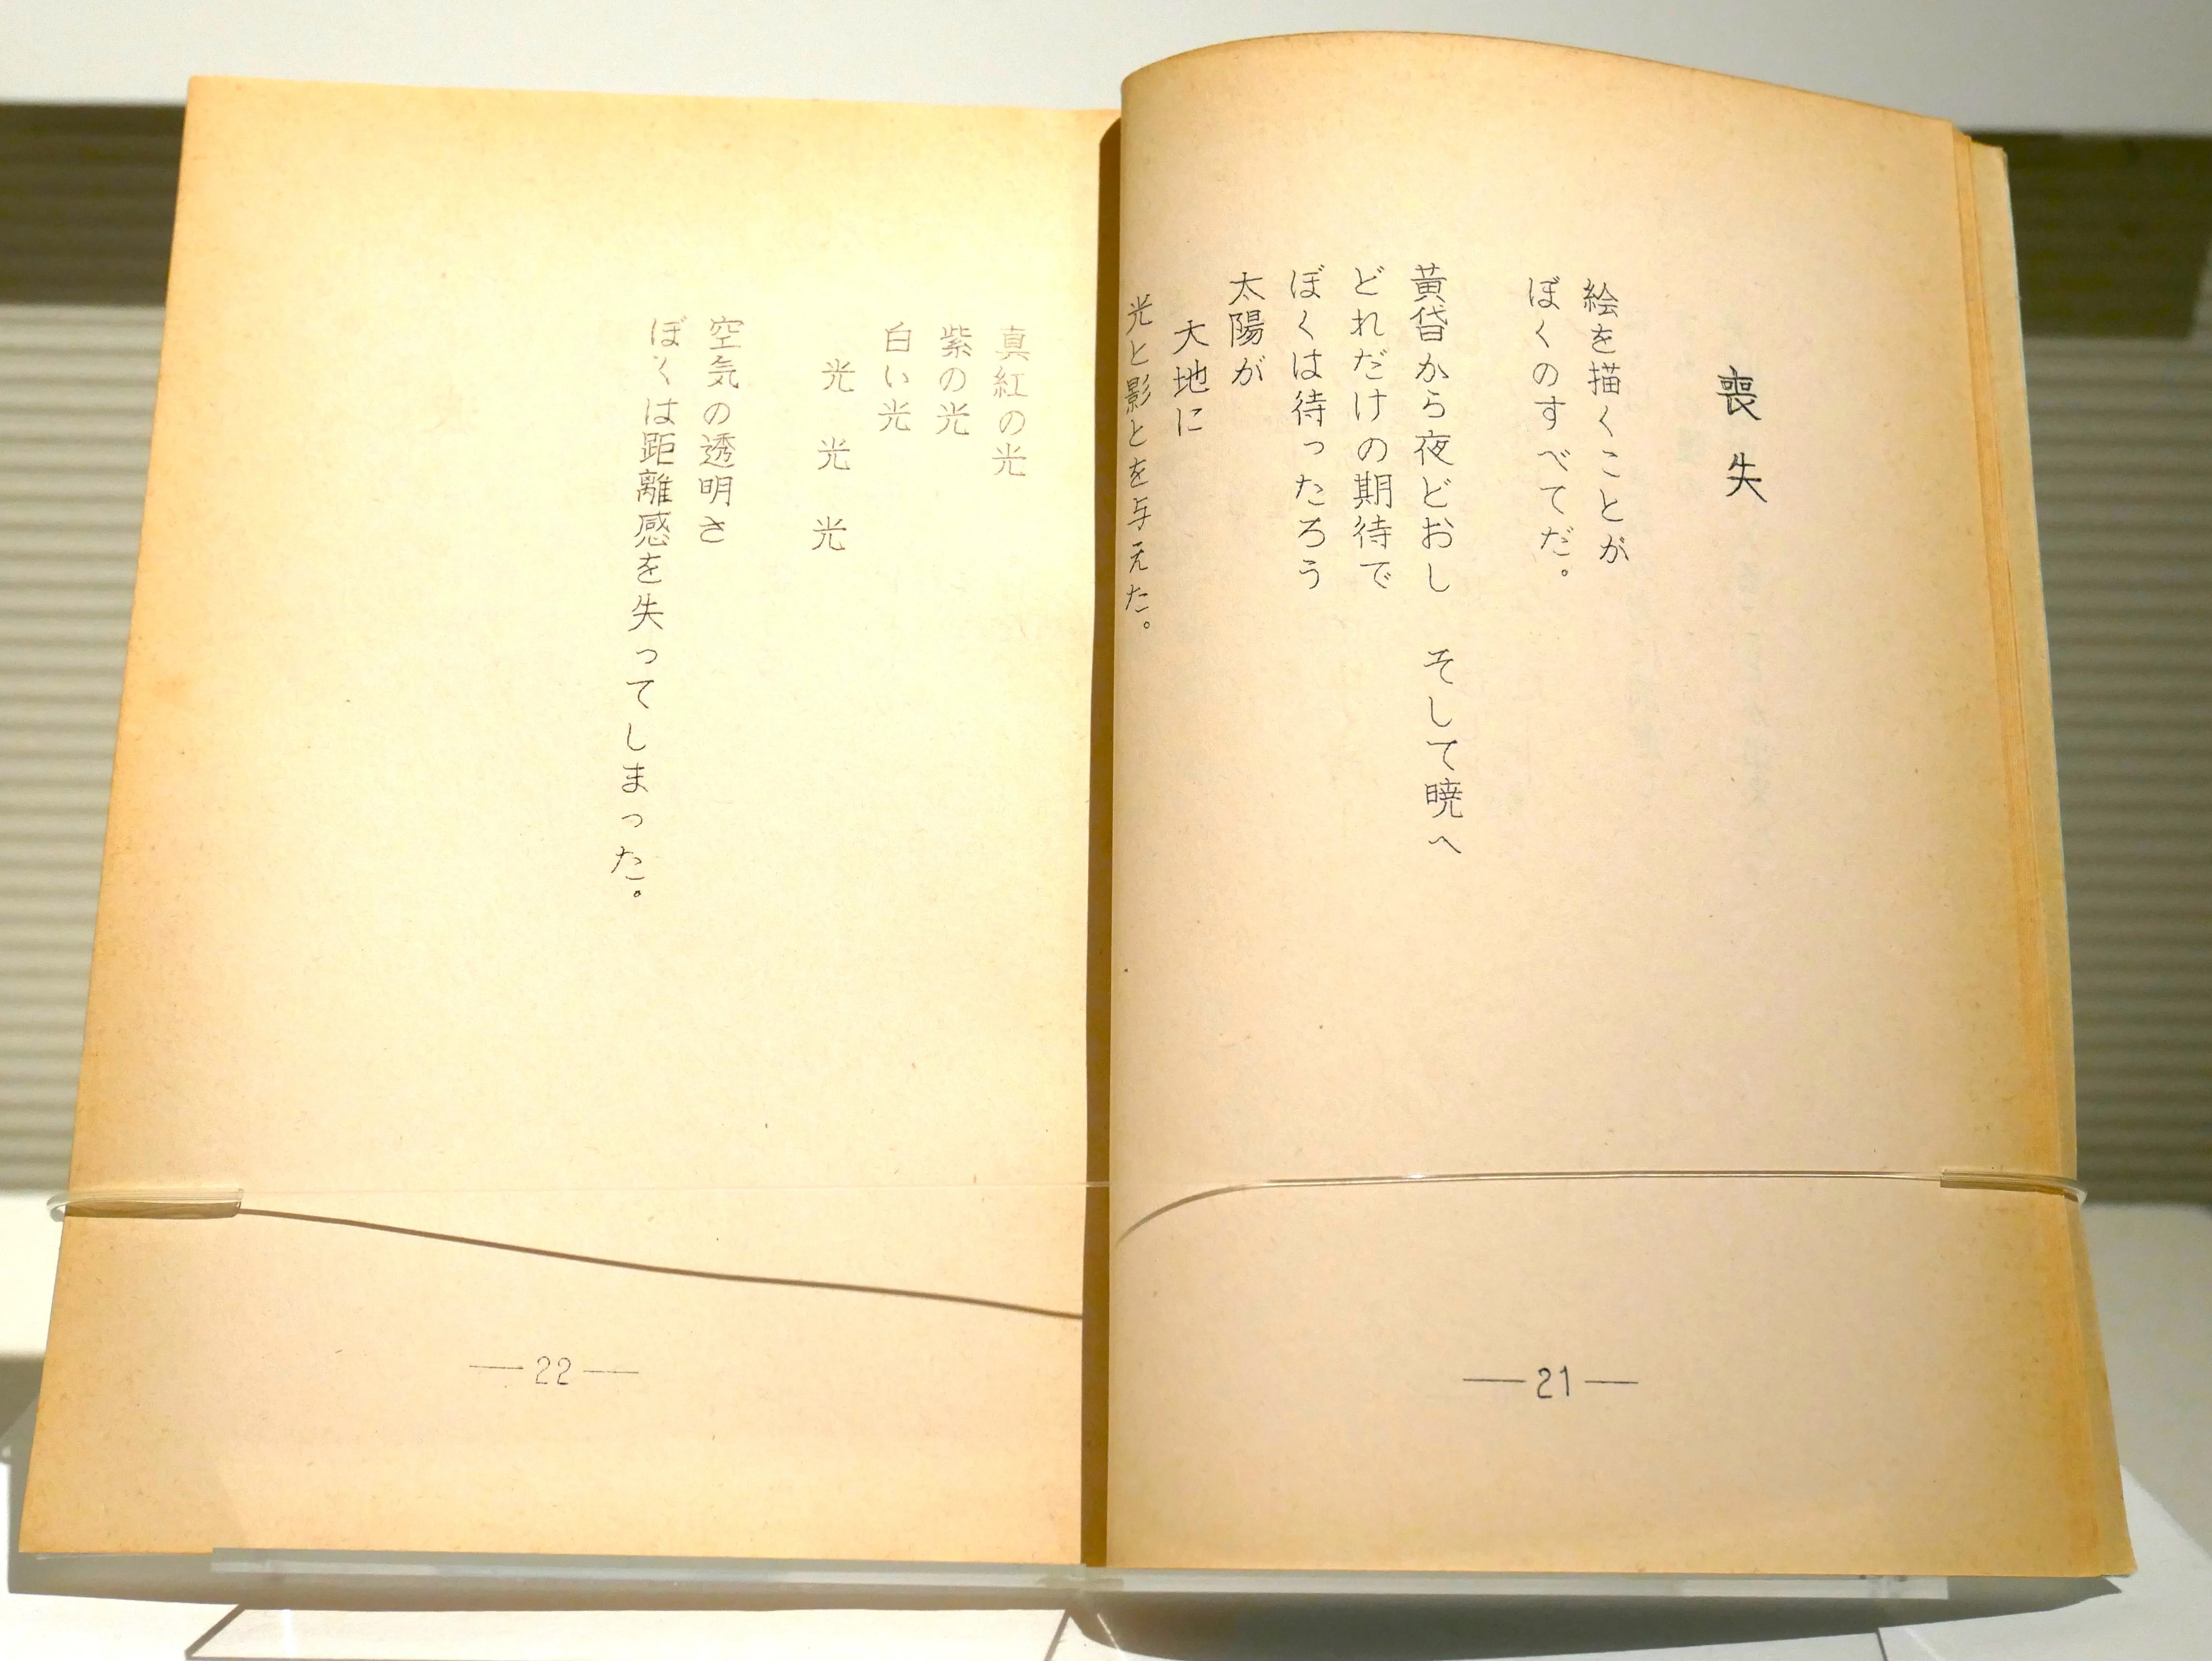 喪失
絵を描くことが
ぼくのすべてだ。
黄昏から夜どおし　そして暁へ
どれだけの期待で
ぼくは待ったろう
太陽が
大地に
光と影とを与えた。
—21—
真紅の光
紫の光
白い光
光　光　光
空気の透明さ
ぼくは距離感を失ってしまった。
—22—